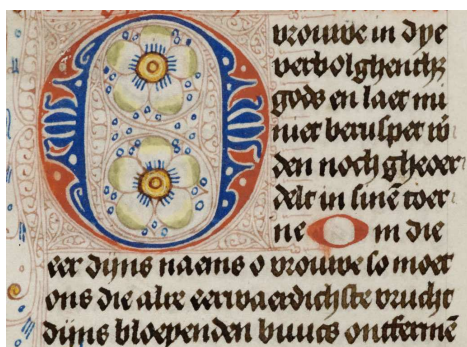 O vrouwe in dye
verbolghentheyt
gods en laet mi
niet berespet w̄
den noch gheoer
delt in sinē toer
ne O m die
eer dijns naems o vrouwe so moet
ons die alre eerwaerdichste vrucht
dijns bloeyenden buucs ontfermē